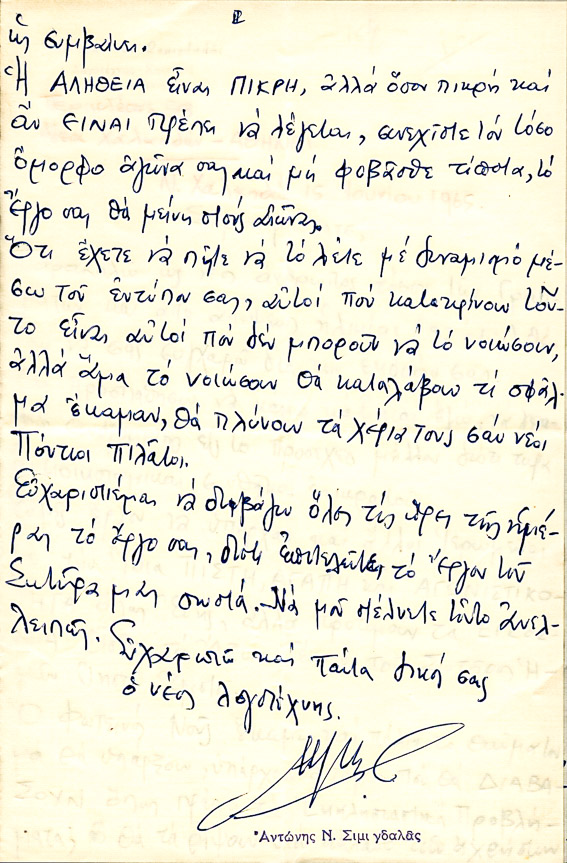 ὡς συμβαίνει.
Ἡ ΑΛΗΘΕΙΑ εἶναι ΠΙΚΡΗ, ἀλλά ὅσον πικρή καί
ἄν ΕΙΝΑΙ πρέπει νά λέγεται, συνεχίστε τόν τόσο
ὄμορφο ἀγῶνα σας καί μή φοβᾶσθε τίποτα, τό
ἔργο σας θά μείνη στούς αἰῶνας.
Ὅτι ἔχετε νά πῆτε νά τό λέτε μέ δυναμισμό μέ-
σω τοῦ ἐντύπου σας, αὐτοί πού κατακρίνουν τοῦ-
το εἶναι αὐτοί πού δέν μποροῦν νά τό νοιώσουν,
ἀλλά ἅμα τό νοιώσουν θά καταλάβουν τί σφάλ-
μα ἔκαμαν, θά πλύνουν τά χέρια τους σάν νέοι
Πόντιοι Πιλᾶτοι.
Εὐχαριστιέμαι νά διαβάζω ὅλες τίς ὧρες τῆς ἡμέ-
ρας τό ἔργο σας, διότι ἐπιτελεῖτε τό ἔργον τοῦ
Σωτῆρα μας σωστά. Νά μοῦ στέλνετε τοῦτο ἀνελ-
λειπῶς. Εὐχαριστῶ καί πάντα δικός σας
ὁ νέος λογοτέχνης.
Ἀντώνης Ν. Σιμιγδαλᾶς